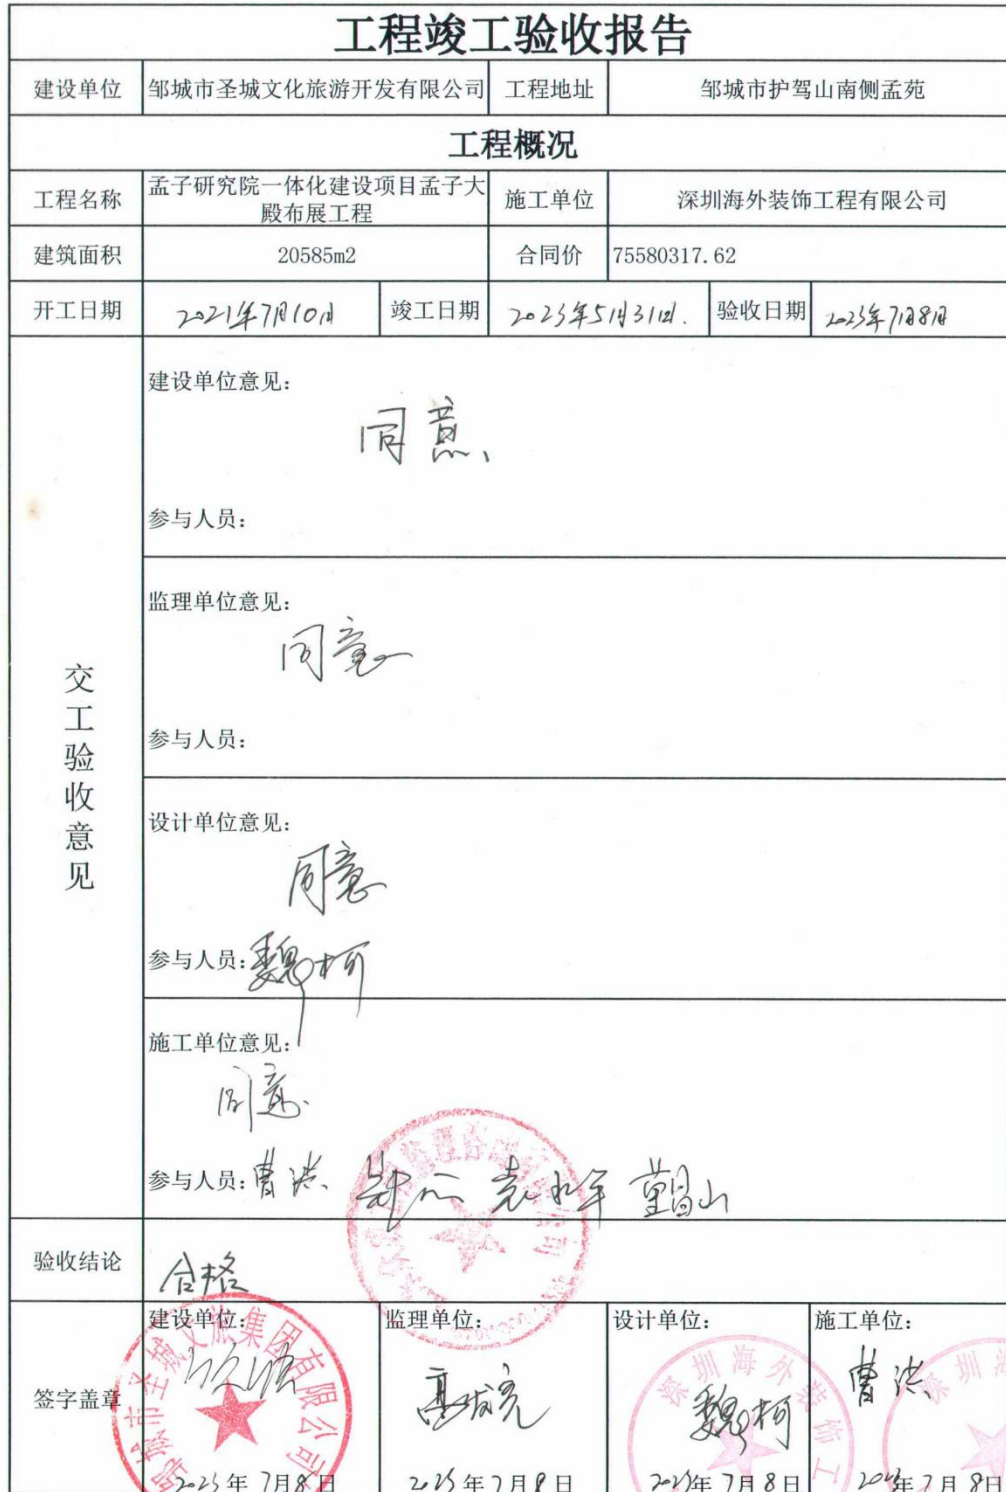 工程竣工验收报告
建设单位 邹城市圣城文化旅游开发有限公司 工程地址 邹城市护驾山南侧孟苑
工程概况
工程名称 孟子研究院一体化建设项目孟子大
殿布展工程 施工单位 深圳海外装饰工程有限公司
建筑面积 20585m2 合同价 75580317.62
开工日期 2021年7月10日 竣工日期 2023年5月31日. 验收日期 2023年7月8日
交工验收意见
建设单位意见:
同意、
参与人员:
监理单位意见:
同意
参与人员:
设计单位意见:
同意
参与人员: 魏柯
施工单位意见:
同意
参与人员: 曹洪
验收结论 合格
签字盖章
建设单位: 监理单位: 设计单位: 施工单位:
城市圣城文旅集团有限公司
深圳海外装饰工
深圳海
魏柯 曹洪
2023年7月8日 2023年7月8日 2023年7月8日 2023年7月8日